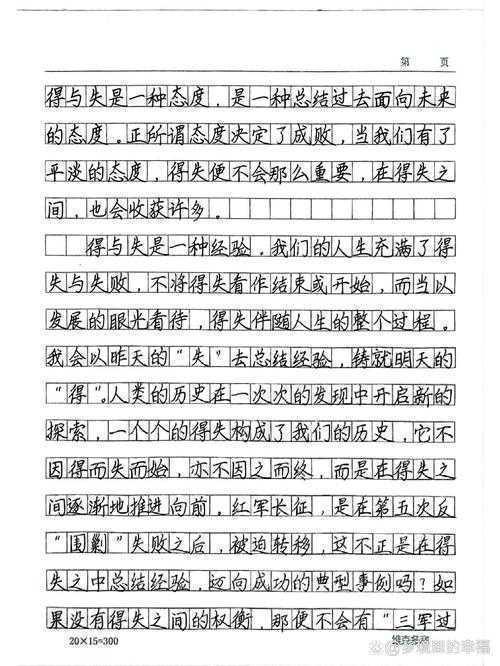 第 页
得与失是一种态度，是一种总结过去面向未来
的态度。正所谓态度决定了成败，当我们有了
平淡的态度，得失便不会那么重要，在得失之
间，也会收获许多。
得与失是一种经验，我们的人生充满了得
失与失败，不将得失看作结束或开始，而当以
发展的眼光看待，得失伴随人生的整个过程。
我会以昨天的“失”去总结经验，铸就明天的
“得”。人类的历史在一次次的发现中开启新的
探索，一个个的得失构成了我们的历史，它不
因得而失而始，亦不因之而终，而是在得失之
间逐渐地推进向前。红军长征，是在第五次反
“围剿”失败之后，被迫转移，这不正是在得
失之中总结经验，迈向成功的典型事例吗？如
果没有得失之间的权衡，那便不会有“三军过
20×15=300
的幸福